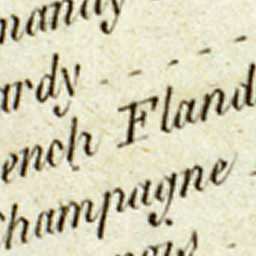 mandy
ardy - - - - -
ench Fland
Champagne -
nois -